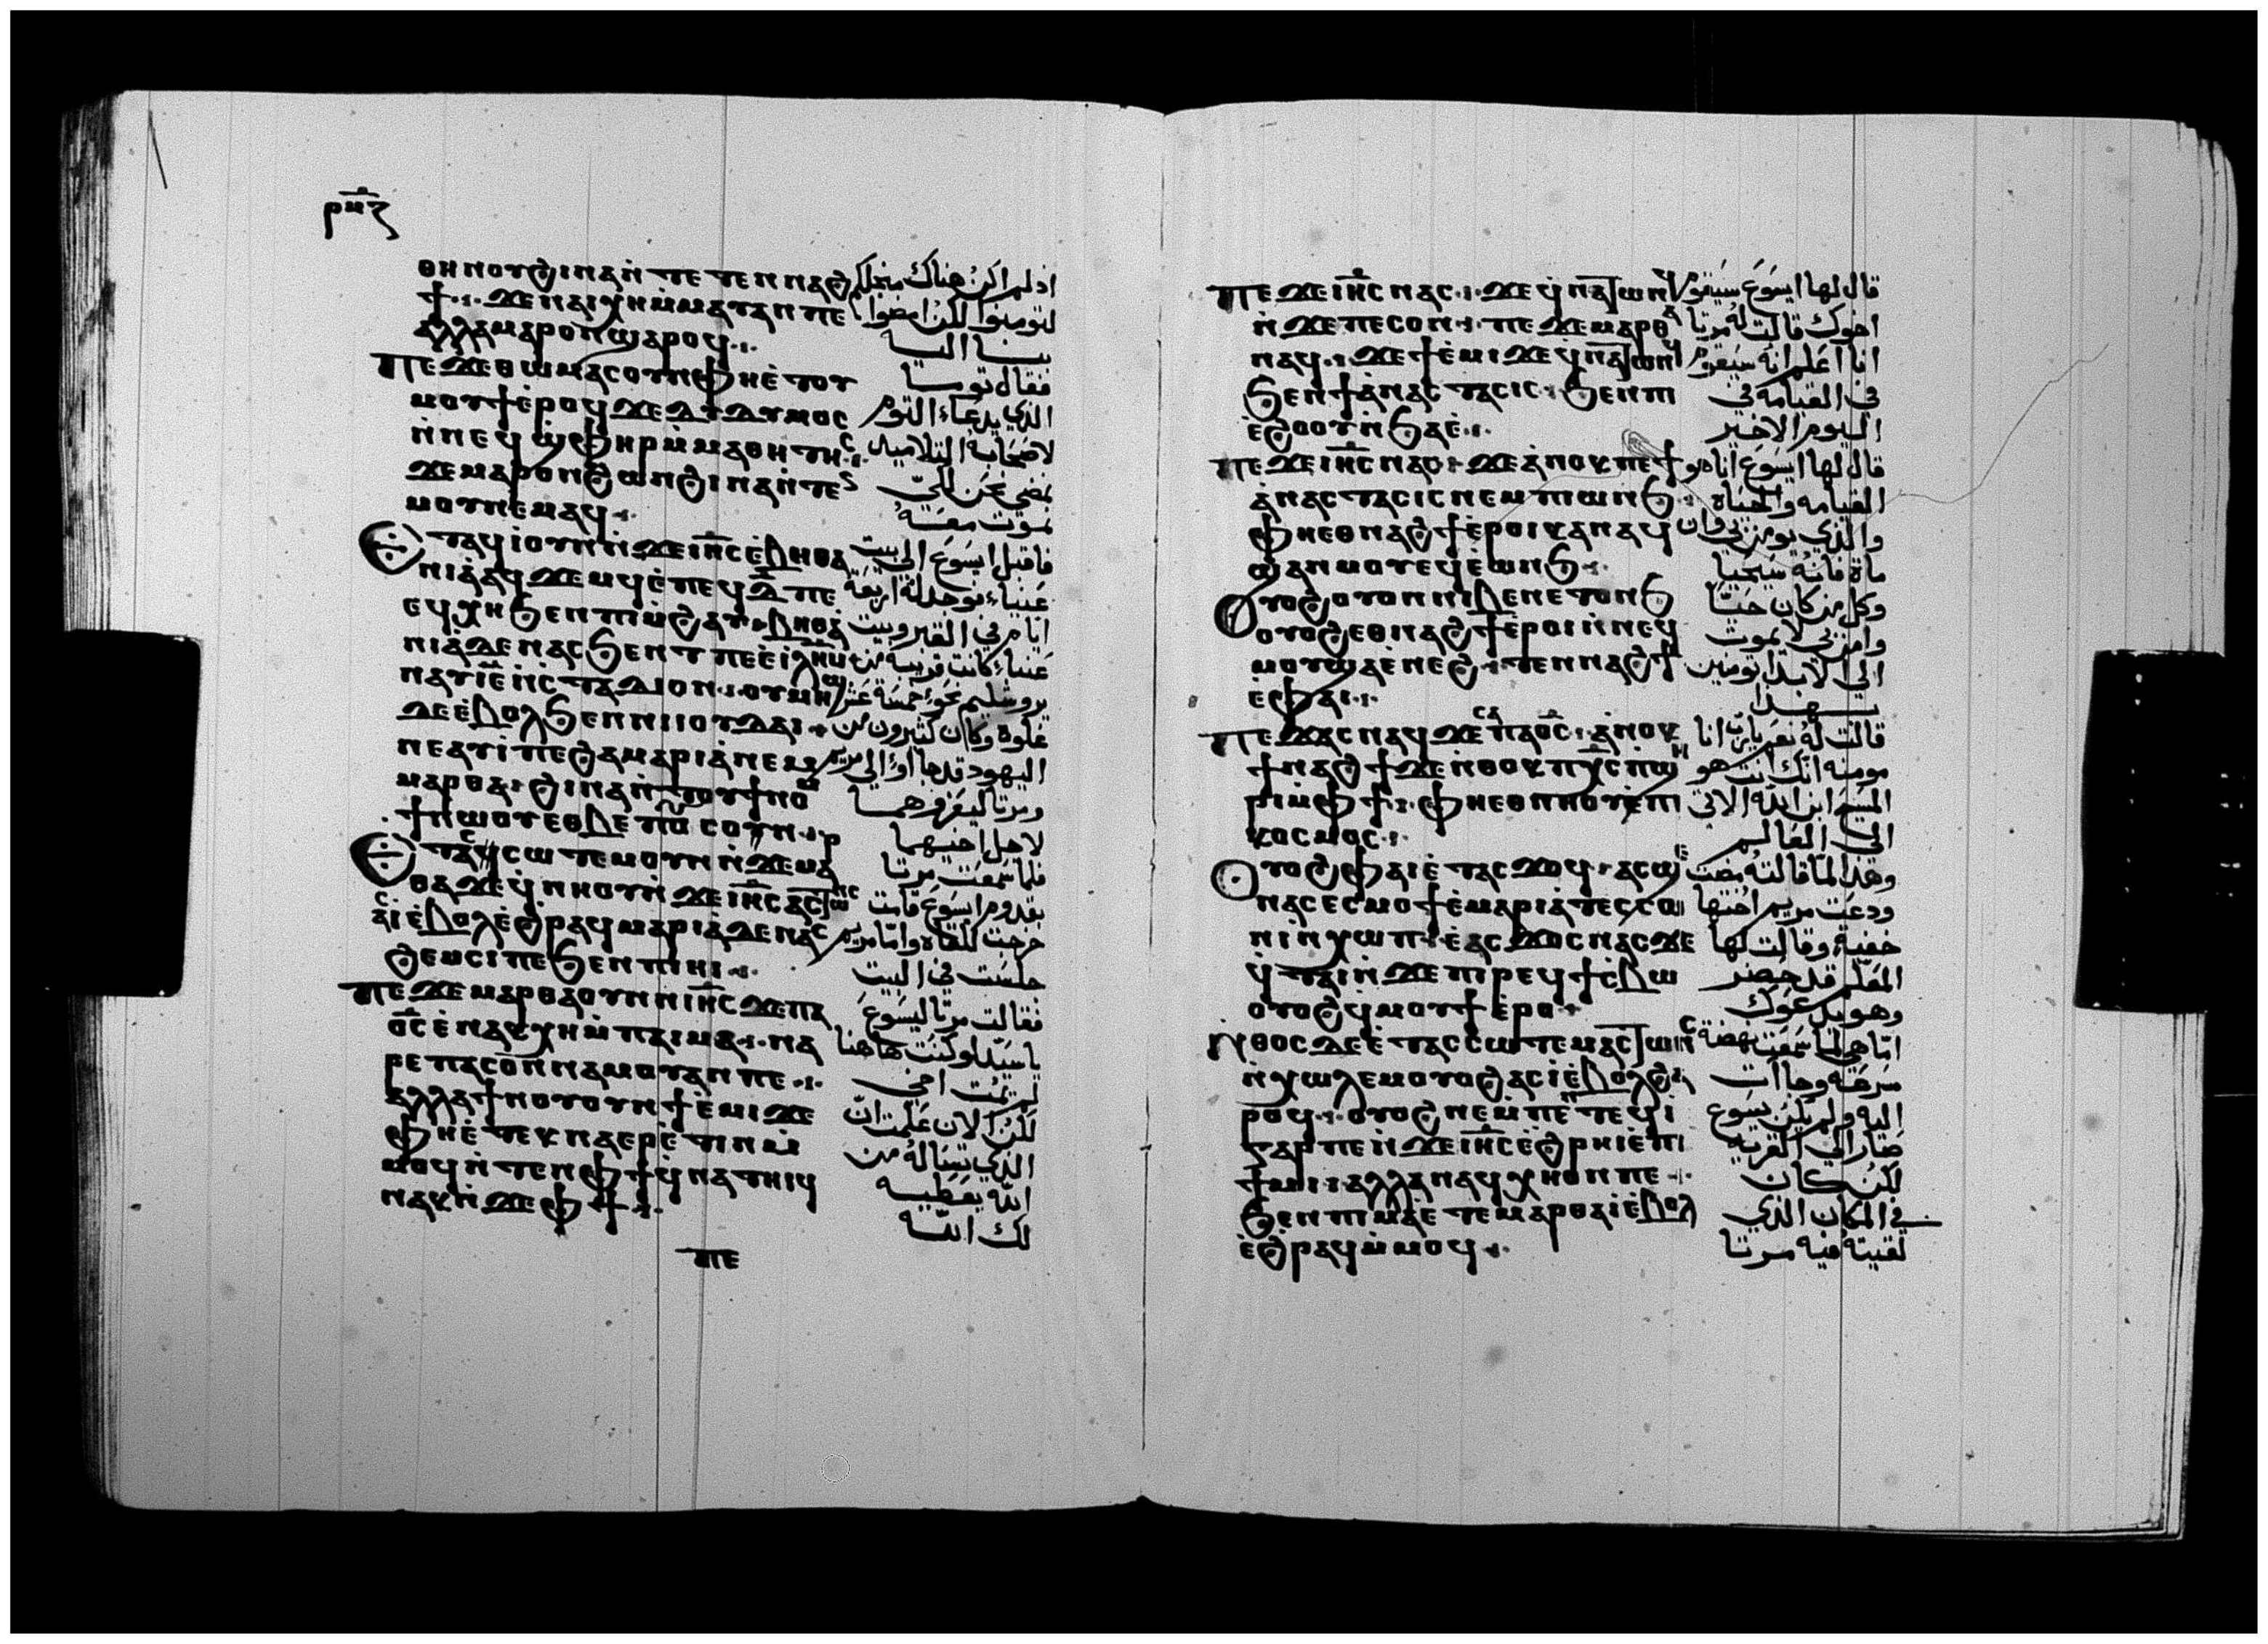 ⲣⲙⲍ
ⲑⲏⲛⲟⲩϩⲓⲛⲁⲛ̀ⲧⲉⲧⲉⲛⲛⲁϩ
ϯ·:· ϫⲉⲛⲁⲓⲭⲏⲙ̀ⲙⲁⲩⲁⲛⲡⲉ
ⲁⲗⲗⲁⲙⲁⲣⲟⲛϣⲁⲣⲟϥ·:·
ⲡⲉϫⲉⲑⲱⲙⲁⲥⲟⲩⲛⲫⲏⲉ̀ⲧⲟⲩ
ⲙⲟⲩϯⲉ̀ⲣⲟϥϫⲉⲇⲓⲇⲩⲙⲟⲥ
ⲛ̀ⲛⲉϥϣⲫⲏⲣⲙ̀ⲙⲁⲑⲏⲧⲏⲥ·:·
ϫⲉⲙⲁⲣⲟⲛϩⲱⲛϩⲓⲛⲁⲛ̀ⲧⲉⲛ
ⲙⲟⲩⲛⲉⲙⲁϥ·:·
ⲉⲧⲁϥⲓⲟⲩⲛⲛ̀ϫⲉⲓⲏ̅ⲥⲉ̀ⲃⲏⲑⲁ
ⲛⲓⲁ̀ⲁϥϫⲉⲙϥⲉ̀ⲡⲉϥⲇ̅ⲡⲉ
ⲉϥⲭⲏϧⲉⲛⲡⲓⲙ̀ϩⲁⲩ·:·ⲃⲏⲑⲁ̀
ⲛⲓⲁ̀ⲇⲉⲛⲁⲥϧⲉⲛⲧⲡⲉⲉ̀ⲓ̅ⲗ̅ⲏ̅ⲙ̅
ⲛⲁⲩⲓ̅ⲉ̅ⲛ̀ⲥⲧⲁⲇⲓⲟⲛ·:·ⲟⲩⲙⲏϣ
ⲇⲉⲉ̀ⲃⲟⲗϧⲉⲛⲛⲓⲓⲟⲩⲇⲁⲓ·:·
ⲛⲉⲁⲩⲓ̀ⲡⲉϩⲁⲙⲁⲣⲓⲁ̀ⲛⲉⲙ
ⲙⲁⲣⲑⲁ·:ϩⲓⲛⲁⲛ̀ⲧⲟⲩϯⲛⲟⲙ
ϯⲛⲱⲟⲩⲉⲑⲃⲉⲡⲟⲩⲥⲟⲛ·:·
ⲉⲧⲁⲥⲥⲱⲧⲉⲙⲟⲩⲛⲛ̀ϫⲉⲙⲁⲣ
ⲑⲁϫⲉϥ̀ⲛⲏⲟⲩⲛ̀ϫⲉⲓⲏ̅ⲥⲁⲥⲧⲱⲛⲥ
ⲁⲥⲓ̀ⲉ̀ⲃⲟⲗⲉ̀ϩⲣⲁϥⲙⲁⲣⲓⲁ̀ⲇⲉⲛⲁⲥ
ϩⲉⲙⲥⲓⲡⲉϧⲉⲛⲡⲓⲏⲓ·:·
ⲡⲉϫⲉⲙⲁⲣⲑⲁⲟⲩⲛⲛⲓⲏ̅ⲥϫⲉⲡⲁ
ⲟ̅ⲥⲉ̀ⲛⲁⲕⲭⲏⲙ̀ⲡⲁⲓⲙⲁ·:·ⲛⲁ
ⲣⲉⲡⲁⲥⲟⲛⲛⲁⲙⲟⲩⲁⲛⲡⲉ·:·
ⲁⲗⲗⲁϯⲛⲟⲩⲟⲩⲛϯⲉ̀ⲙⲓϫⲉ
ⲫⲏⲉ̀ⲧⲉⲕⲛⲁⲉⲣⲉ̀ⲧⲓⲛⲙ̀
ⲙⲟϥⲛ̀ⲧⲉⲛⲫϯϥ̀ⲛⲁⲧⲏⲓϥ
ⲛⲁⲕⲛ̀ϫⲉⲫϯ·:·
ⲡⲉ
اذ لم اكن هناك من اجلكم
لتومنوا لكن امضوا
بنا اليه
فقال توما
الذي يدعاء التوم
لاصحابه التلاميذ
نمضي نحن لكي
نموت معه
فاقبل ايسوع الى بيت
عنياء فوجد له اربعة
ايام في القبر وبيت
عنياء كانت قريبه من
يروشليم نحو خمسة عشر
غلوه وكان كثيرون من
اليهود قد جاوا الى مريم
ومرتا ليعزوهما
لاجل اخيهما
فلما سمعت مرتا
بقدوم ايسوع قامت
خرجت للقاه واما مريم
جلست في البيت
فقالت مرتا ليسوع
يا سيد لو كنت هاهنا
لم يمت اخي
لكن الان علمت ان
الذي تساله من
الله يعطيه
لك الله
ⲡⲉϫⲉⲓⲏ̅ⲥⲛⲁⲥ·:·ϫⲉϥ̀ⲛⲁⲧⲱⲛϥ
ⲛ̀ϫⲉⲡⲉⲥⲟⲛ·:·ⲡⲉϫⲉⲙⲁⲣⲑⲁ
ⲛⲁϥ·:·ϫⲉϯⲉ̀ⲙⲓϫⲉϥ̀ⲛⲁⲧⲱⲛϥ
ϧⲉⲛϯⲁ̀ⲛⲁⲥⲧⲁⲥⲓⲥ·:ϧⲉⲛⲡⲓ
ⲉ̀ϩⲟⲟⲩⲛ̀ϧⲁⲉ̀·:·
ⲡⲉϫⲉⲓⲏ̅ⲥⲛⲁⲥ·:ϫⲉⲁ̀ⲛⲟⲕⲡⲉϯ
ⲁ̀ⲛⲁⲥⲧⲁⲥⲓⲥⲛⲉⲙⲡⲓⲱⲛϧ·:
ⲫⲏⲉⲑⲛⲁϩϯⲉ̀ⲣⲟⲓⲕⲁⲛⲁϥ
ϣⲁⲛⲙⲟⲩⲉϥⲉ̀ⲱⲛϧ·:·
ⲟⲩⲟϩⲟⲩⲟⲛⲛⲓⲃⲉⲛⲉⲧⲟⲛϧ
ⲟⲩⲟϩⲉⲑⲛⲁϩϯⲉ̀ⲣⲟⲓⲛ̀ⲛⲉϥ
ⲙⲟⲩϣⲁⲉ̀ⲛⲉϩ·:·ⲧⲉⲛⲛⲁϩϯ
ⲉ̀ⲫⲁⲓ·:·
ⲡⲉϫⲁⲥⲛⲁϥϫⲉⲥⲉⲡⲁⲟ̅ⲥ·:ⲁ̀ⲛⲟⲕ
ϯⲛⲁϩϯϫⲉⲛ̀ⲑⲟⲕⲡⲭ̅ⲥⲡ̀ϣⲏ
ⲣⲓⲙ̀ⲫϯ·:·ⲫⲏⲉⲑⲛⲏⲟⲩⲉ̀ⲡⲓ
ⲕⲟⲥⲙⲟⲥ·:·
ⲟⲩⲟϩⲫⲁⲓⲉ̀ⲧⲁⲥϫⲟϥ·:ⲁⲥϣⲉ
ⲛⲁⲥⲉⲥⲙⲟϯⲉ̀ⲙⲁⲣⲓⲁ̀ⲧⲉⲥⲥⲱ
ⲛⲓⲛ̀ⲭⲱⲡ·:ⲉⲁⲥϫⲟⲥⲛⲁⲥϫⲉ
ϥ̀ⲧⲁⲓⲛ̀ϫⲉⲡⲓⲣⲉϥϯⲥ̀ⲃⲱ
ⲟⲩⲟϩϥⲙⲟⲩϯⲉ̀ⲣⲟ·:·
ⲛ̀ⲑⲟⲥⲇⲉⲉ̀ⲧⲁⲥⲥⲱⲧⲉⲙⲁⲥⲧⲱⲛⲥ
ⲛ̀ⲭⲱⲗⲉⲙⲟⲩⲟϩⲁⲥⲓ̀ⲉ̀ⲃⲟⲗϩⲁ
ⲣⲟϥ·:·ⲟⲩⲟϩⲛⲉⲙ̀ⲡⲉⲛⲧⲉϥⲓ̀
ⲅⲁⲣⲡⲉⲛ̀ϫⲉⲓⲏ̅ⲥⲉ̀ϩⲣⲏⲓⲉ̀ⲡⲓ
ϯⲙⲓ·:ⲁⲗⲗⲁⲛⲁϥⲭⲏⲟⲛⲡⲉ·:·
ϧⲉⲛⲡⲓⲙⲁ̀ⲉⲧⲉⲙⲁⲣⲑⲁⲓ̀ⲉ̀ⲃⲟⲗ
ⲉ̀ϩⲣⲁϥⲙ̀ⲙⲟϥ·:·
قال لها ايسوع سيقوم
اخوك قالت له مرتا
انا اعلم انه سيقوم
في القيامه في
اليوم الاخير
قال لها ايسوع انا هو
القيامه والحياه
والذي يومن بي وان
ماة فانه سيحيا
وكل من كان حيا
وامن بي لا يموت
الى الابد اتومنين
بهذا
قالت له نعم يارب انا
مومنه انك انت هو
المسيح ابن الله الاتي
الى العالم
وهذا لما قالته مضت
ودعت مريم اختها
خفية وقالت لها
المعلم قد حضر
وهو يدعوك
اما هي لما سمعت نهضة
مسرعة وجاات
اليه ولم يكن يسوع
صار الى القريه
لكن كان
في المكان الذي
لقيته فيه مرتا